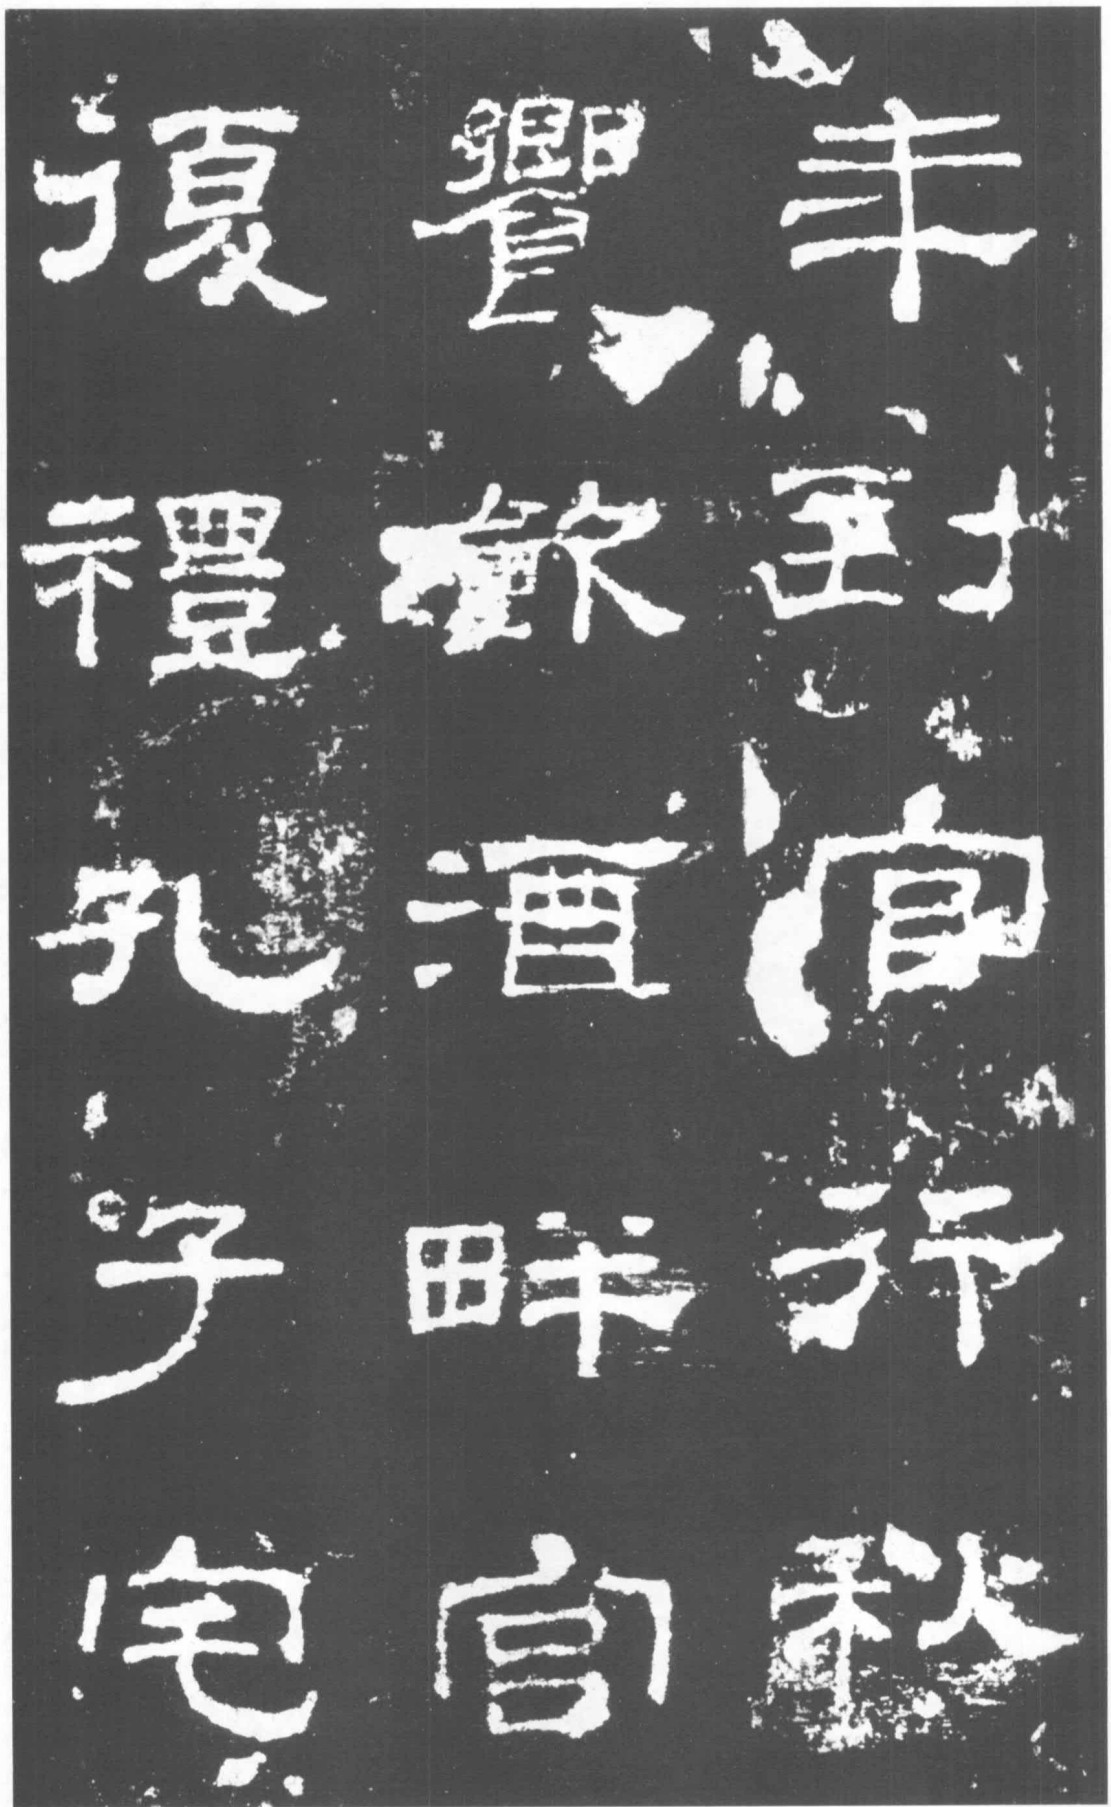 年到官行秋
饗飲酒畔宮
復禮孔子宅